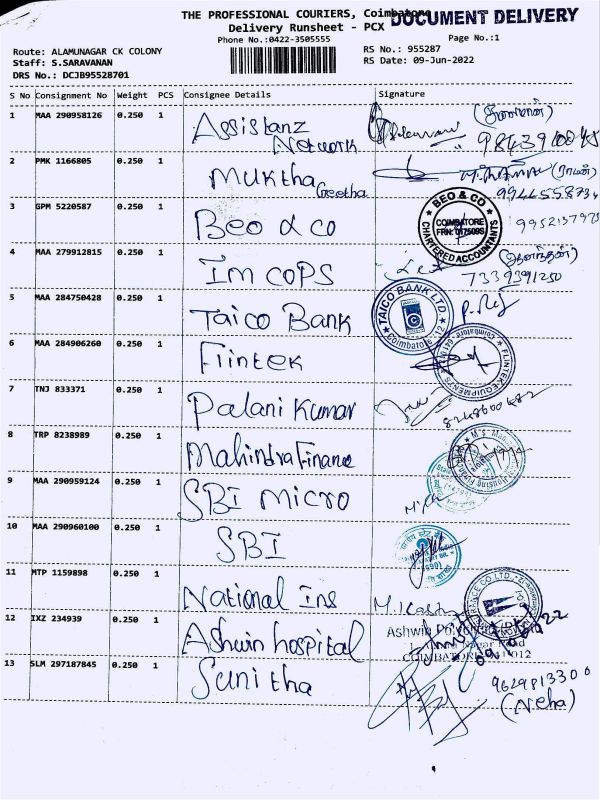 THE PROFESSIONAL COURIERS, Coimbatore
DOCUMENT DELIVERY
Delivery Runsheet - PCX
Phone No.:0422-3505555
Page No.:1
Route: ALAMUNAGAR CK COLONY
RS No.: 955287
Staff: S.SARAVANAN
RS Date: 09-Jun-2022
DRS No.: DCJB95528701
S No Consignment No Weight PCS Consignee Details Signature
1 MAA 290958126 0.250 1 Assistanz
Network
2 PMK 1166805 0.250 1 Muktha
Geetha
3 GPM 5220587 0.250 1 Beo & co
BEO & CO
COIMBATORE
CHARTERED ACCOUNTANTS
4 MAA 279912815 0.250 1 Im COPS
7339391250
5 MAA 284750428 0.250 1 Taico Bank
TAICO BANK LTD.
Coimbatore 12
6 MAA 284906260 0.250 1 Flintek
7 TNJ 833371 0.250 1 Palani Kumar
8248600482
8 TRP 8238989 0.250 1 Mahindra Finance
9 MAA 290959124 0.250 1 SBI Micro
10 MAA 290960100 0.250 1 SBI
11 MTP 1159898 0.250 1 National Ins
12 IXZ 234939 0.250 1 Ashwin hospital
Ashwin
13 SLM 297187845 0.250 1 Sunitha
9629813300
(Neha)